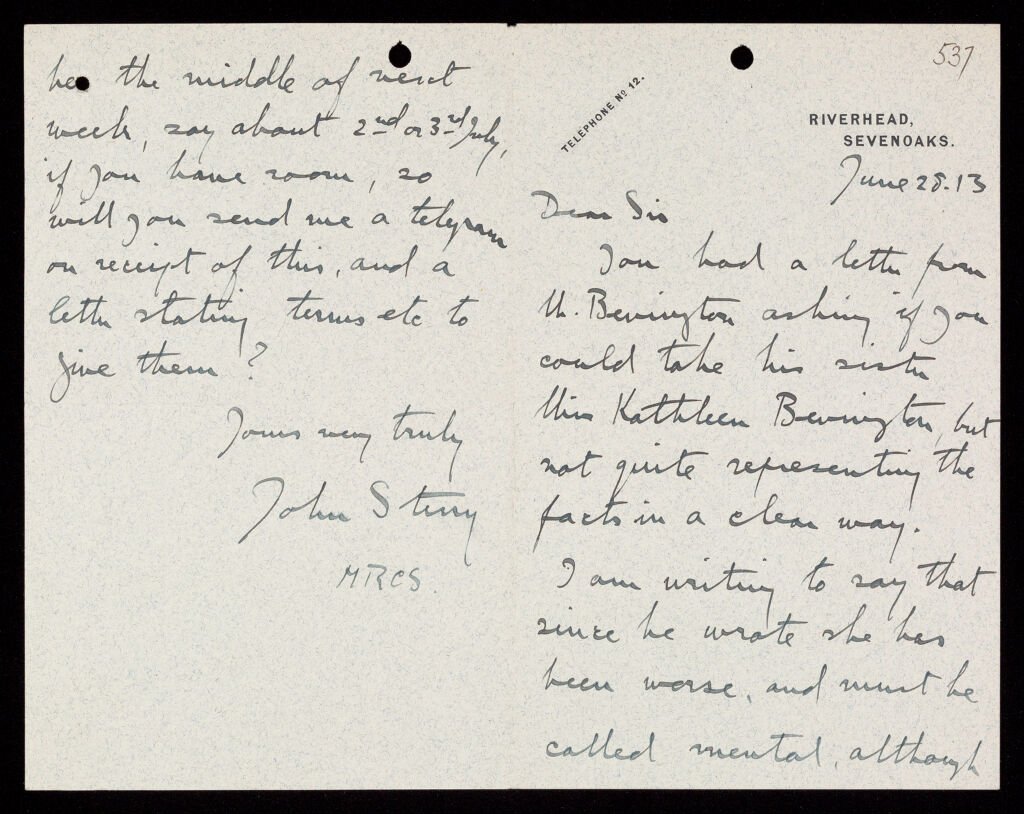 537
TELEPHONE Nº 12.
RIVERHEAD,
SEVENOAKS.
June 28.13
Dear Sir
You had a letter from
Mr. Bevington asking if you
could take his sister
Miss Kathleen Bevington, but
not quite representing the
facts in a clear way.
I am writing to say that
since he wrote she has
been worse, and must be
called mental, although
be the middle of next
week, say about 2nd or 3rd July,
if you have room, so
will you send me a telegram
on receipt of this, and a
letter stating terms etc to
give them?
Yours very truly
John Sterry
MRCS.